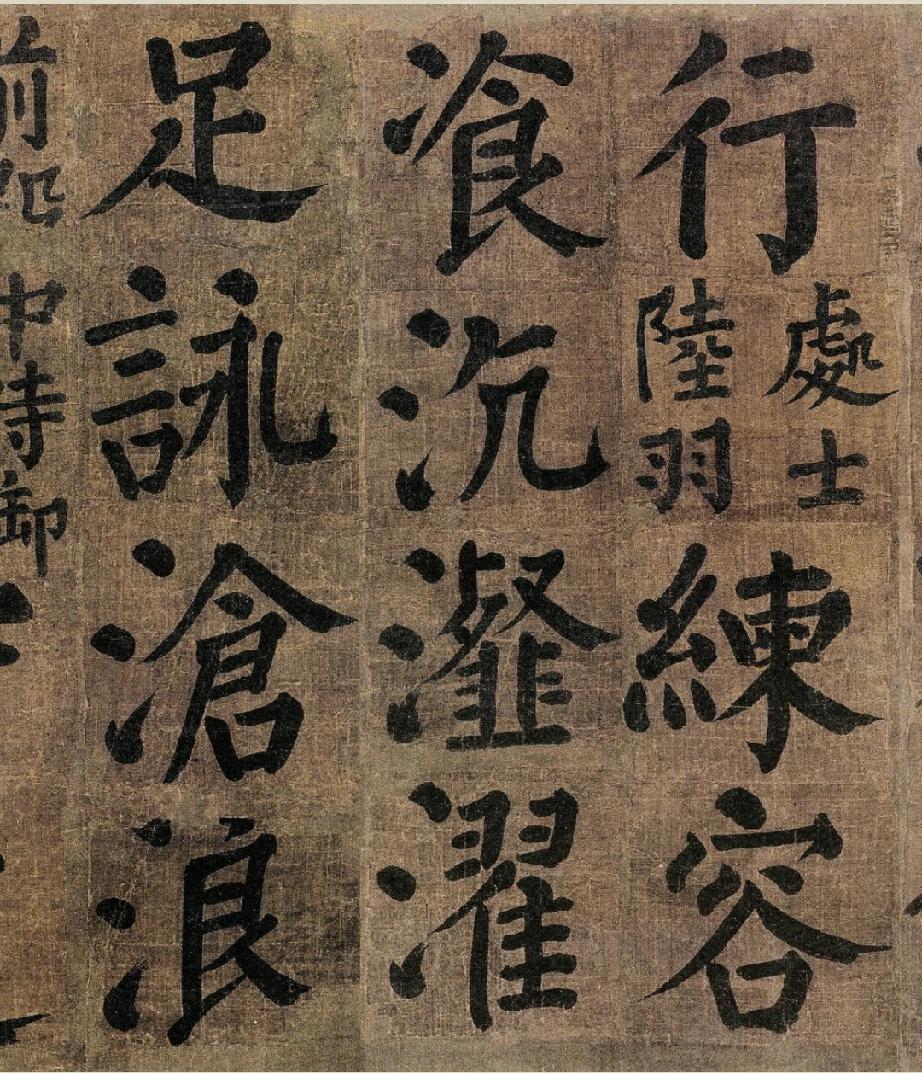 行處士陸羽練容
飡沆瀣濯
足詠滄浪
前殿中侍御